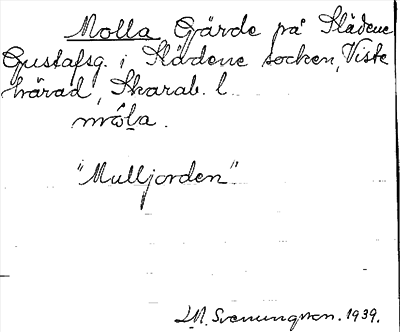 Molla, Gärde på Slädene
Gustafsg. i Slädene socken, Viste
härad, Skarab. l.
mo᷅la.
"Mulljorden".
L.M. Svenungsson. 1939.